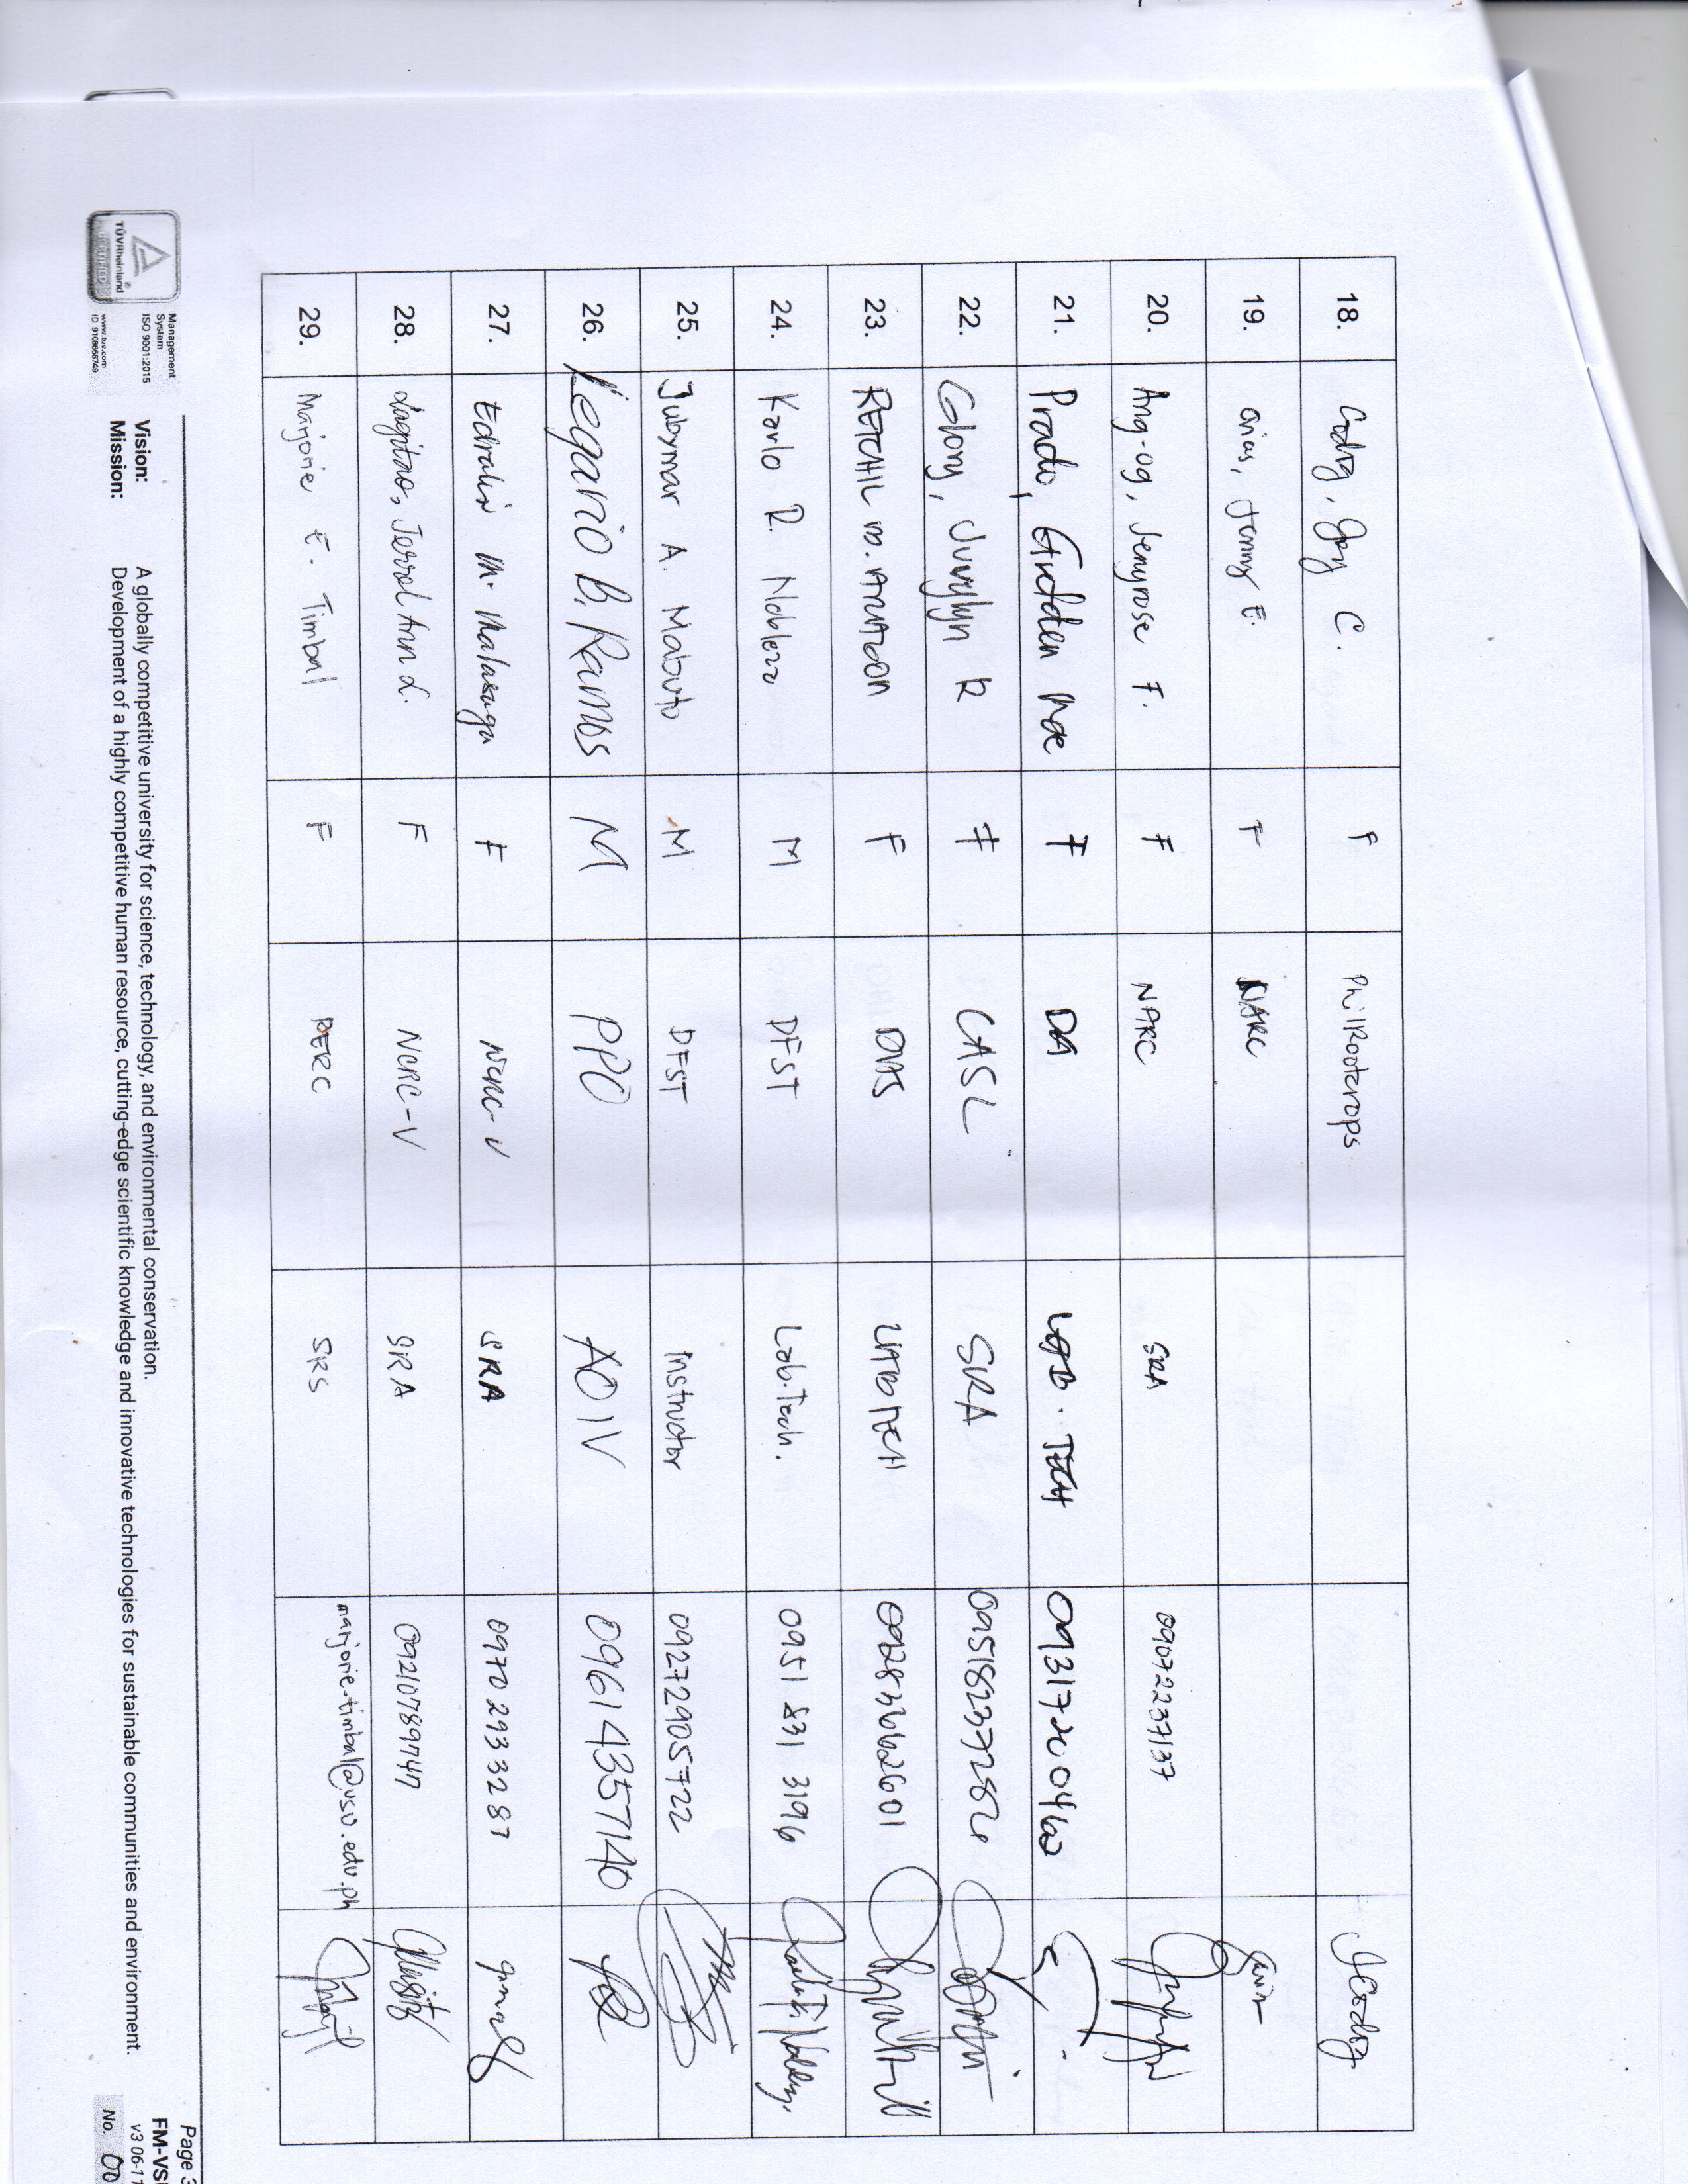 18. Codog, Joy C. F PhilRootcrops
19. Arias, Jenny E. F NARC
20. Ang-og, Jenyrose F. F NARC SRA 09072237137
21. Prado, Gretchen Mae F LAB. TECH
22. Glory, Juvylyn R F CASL SRA
23. F LABTECH
24. Karlo R. Noblezo M DFST Lab.Tech. 0951 831 3196
25. Jubymar A. Mabuto M DFST Instructor 09272905722
26. Legario B. Ramos M PPO AO IV 09614357140
27. Edralin M. Malasaga F NCRC-V SRA 0970 293 3287
28. Lagitao, Jerrel Ann L. F NCRC-V SRA 09210789747
29. Marjorie E. Timbal F RERC SRS marjorie.timbal@vsu.edu.ph
TÜVRheinland®
CERTIFIED
Management
System
ISO 9001:2015
www.tuv.com
ID 9108658749
Vision: A globally competitive university for science, technology, and environmental conservation.
Mission: Development of a highly competitive human resource, cutting-edge scientific knowledge and innovative technologies for sustainable communities and environment.
Page 3
FM-VS
v3 06-11
No. 00